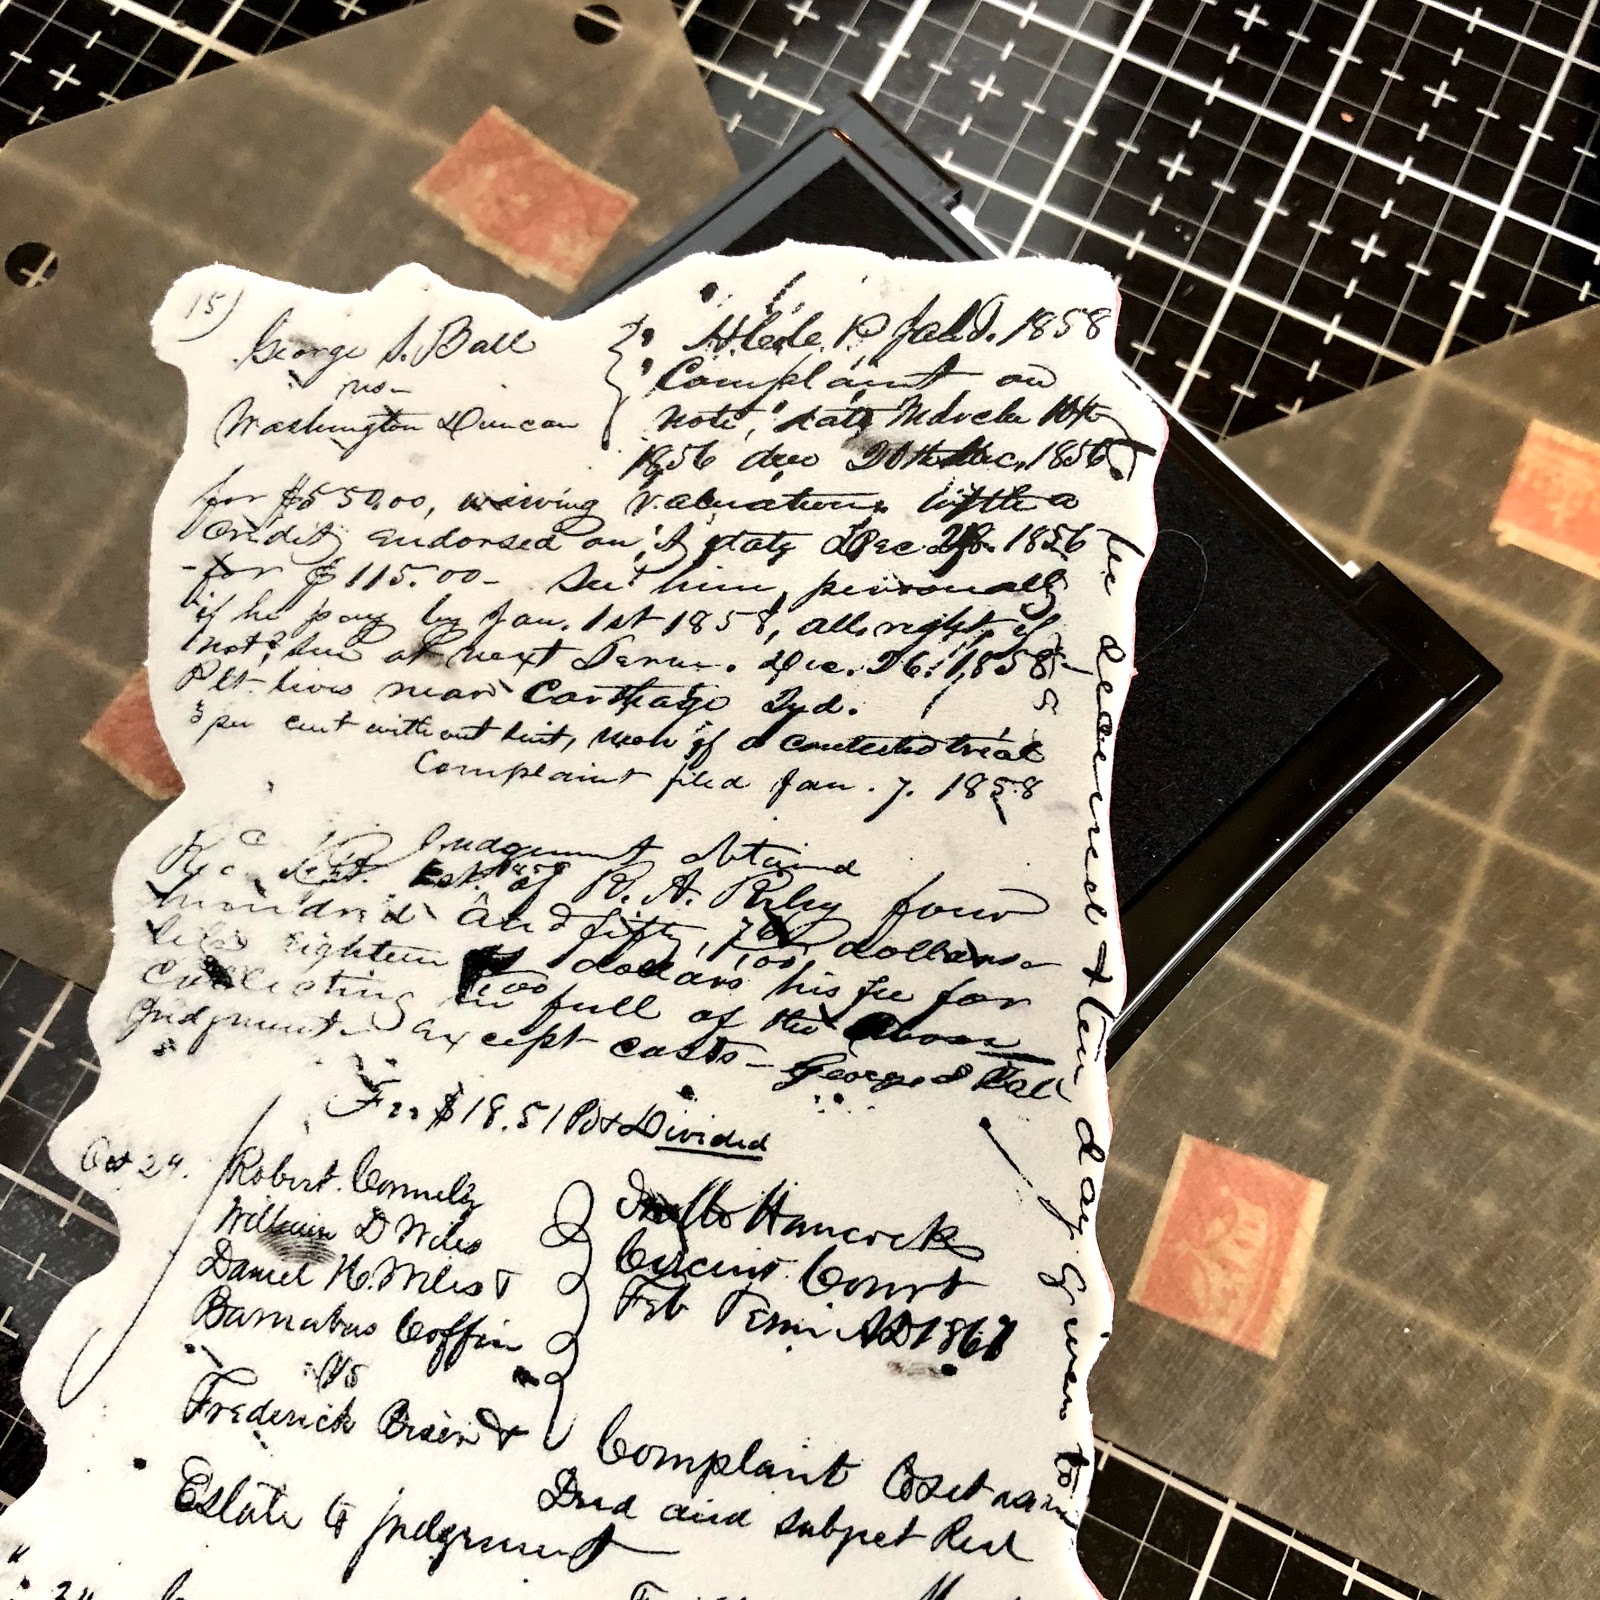 15)
George S. Ball
vs
Washington Duncan
1858
Complaint on
note, date March 10th
1856 due 20th Dec. 1856
for $550.00, waiving valuation, with a
credit endorsed on it date Dec 28. 1856
for $115.00 - See him personally
if he pay by Jan. 1st 1858, all right, if
not, sue at next Term. Dec. 26. 1858
Plt. lives near Carthage Ind.
5 per cent without suit, even if a contested trial
Complaint filed Jan. 7. 1858
Judgment obtained
Rec of R. A. Riley four
hundred and fifty, dollars
less eighteen dollars his fee for
collecting in full of the above
Judgment except costs - George S Ball
Fee $18.51 Pd & Divided
Oct 24.
Robert Connely
William D Wiles
Daniel H. Wiles &
Barnabas Coffin
vs
Frederick &
Hancock
Circuit Court
Feb Term AD 1861
Complaint to set aside
Deed and subject Real
Estate to judgment
24
be secured & ten day given to